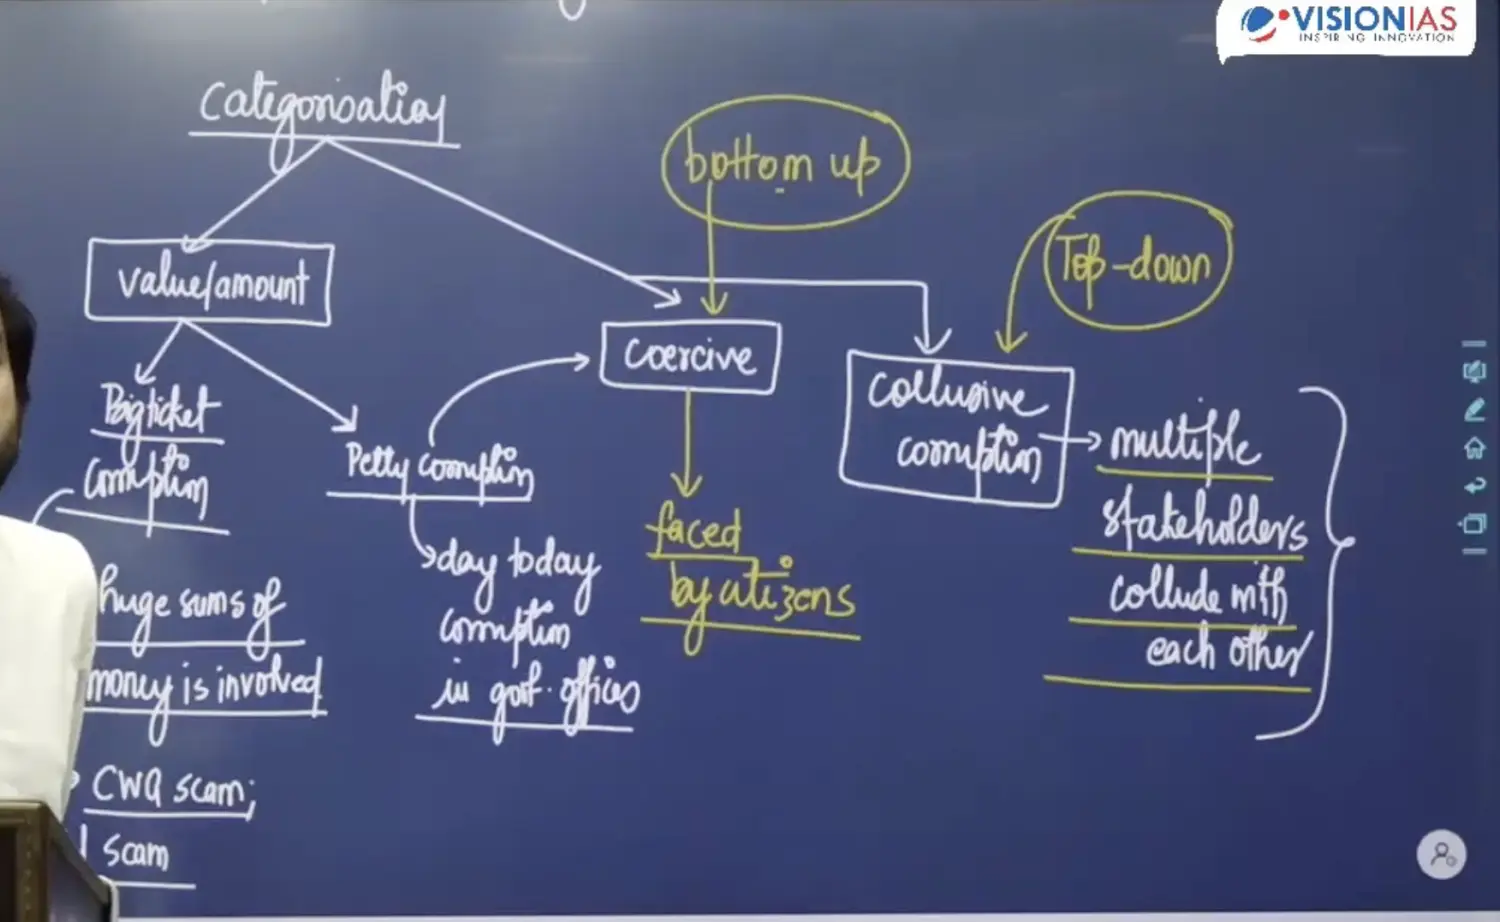 VISIONIAS
INSPIRING INNOVATION
Categorisation
bottom up
Top-down
value/amount
Coercive
Collusive
corruption
Big ticket
corruption
Petty corruption
multiple
stakeholders
collude with
each other
faced
by citizens
day to day
corruption
in govt. offices
huge sums of
money is involved
CWG scam;
scam